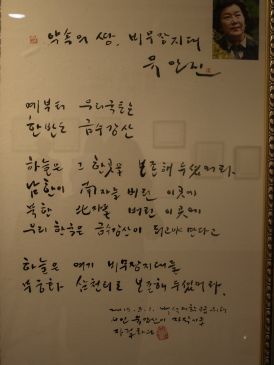 약속의 땅, 비무장지대
유안진
예부터 우리국토는
한반도 금수강산
하늘은 그 한곳을 보존해 두셨더라.
남한이 南자를 버린 이곳에
북한 北자를 버린 이곳에
우리 한족은 금수강산이 되고싶 란다고
하늘은 여기 비무장지대를
무궁화 삼천리로 보존해 두셨더라.
시인 유안진이 자작시를